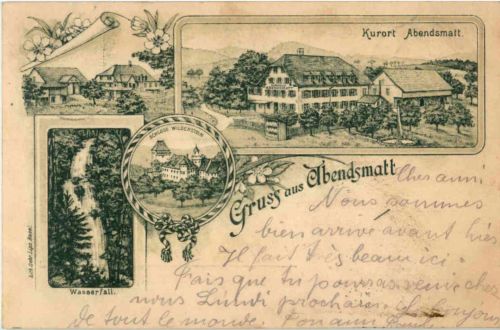 Kurort Abendsmatt.
SCHLOSS WILDENSTEIN
Gruss aus Abendsmatt
Wasserfall.
Cher ami
Nous sommes
bien arrivé avant hier
Il fait très beau ici.
Fais que tu pourras venir chez
nous Lundi prochain.
de tout le monde. Ton ami